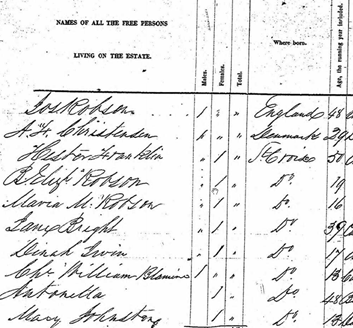 NAMES OF ALL THE FREE PERSONS
LIVING ON THE ESTATE.
Males.
Females.
Total.
Where born.
Age, the running year included.
Jos Robson 1 " " England 48
A. H. Christensen " " Denmark 29
Hester Franklin " 1 " St Croix 50
B. Eliz. Robson " 1 " Do 19
Maria M. Robson " 1 " Do 16
Jane Bright " 1 " Do 39
Dinah " 1 " Do 17
Chs William 1 " " Do 13
Antonetta 1 " Do 48
Mary Johnston 1 " Do 13